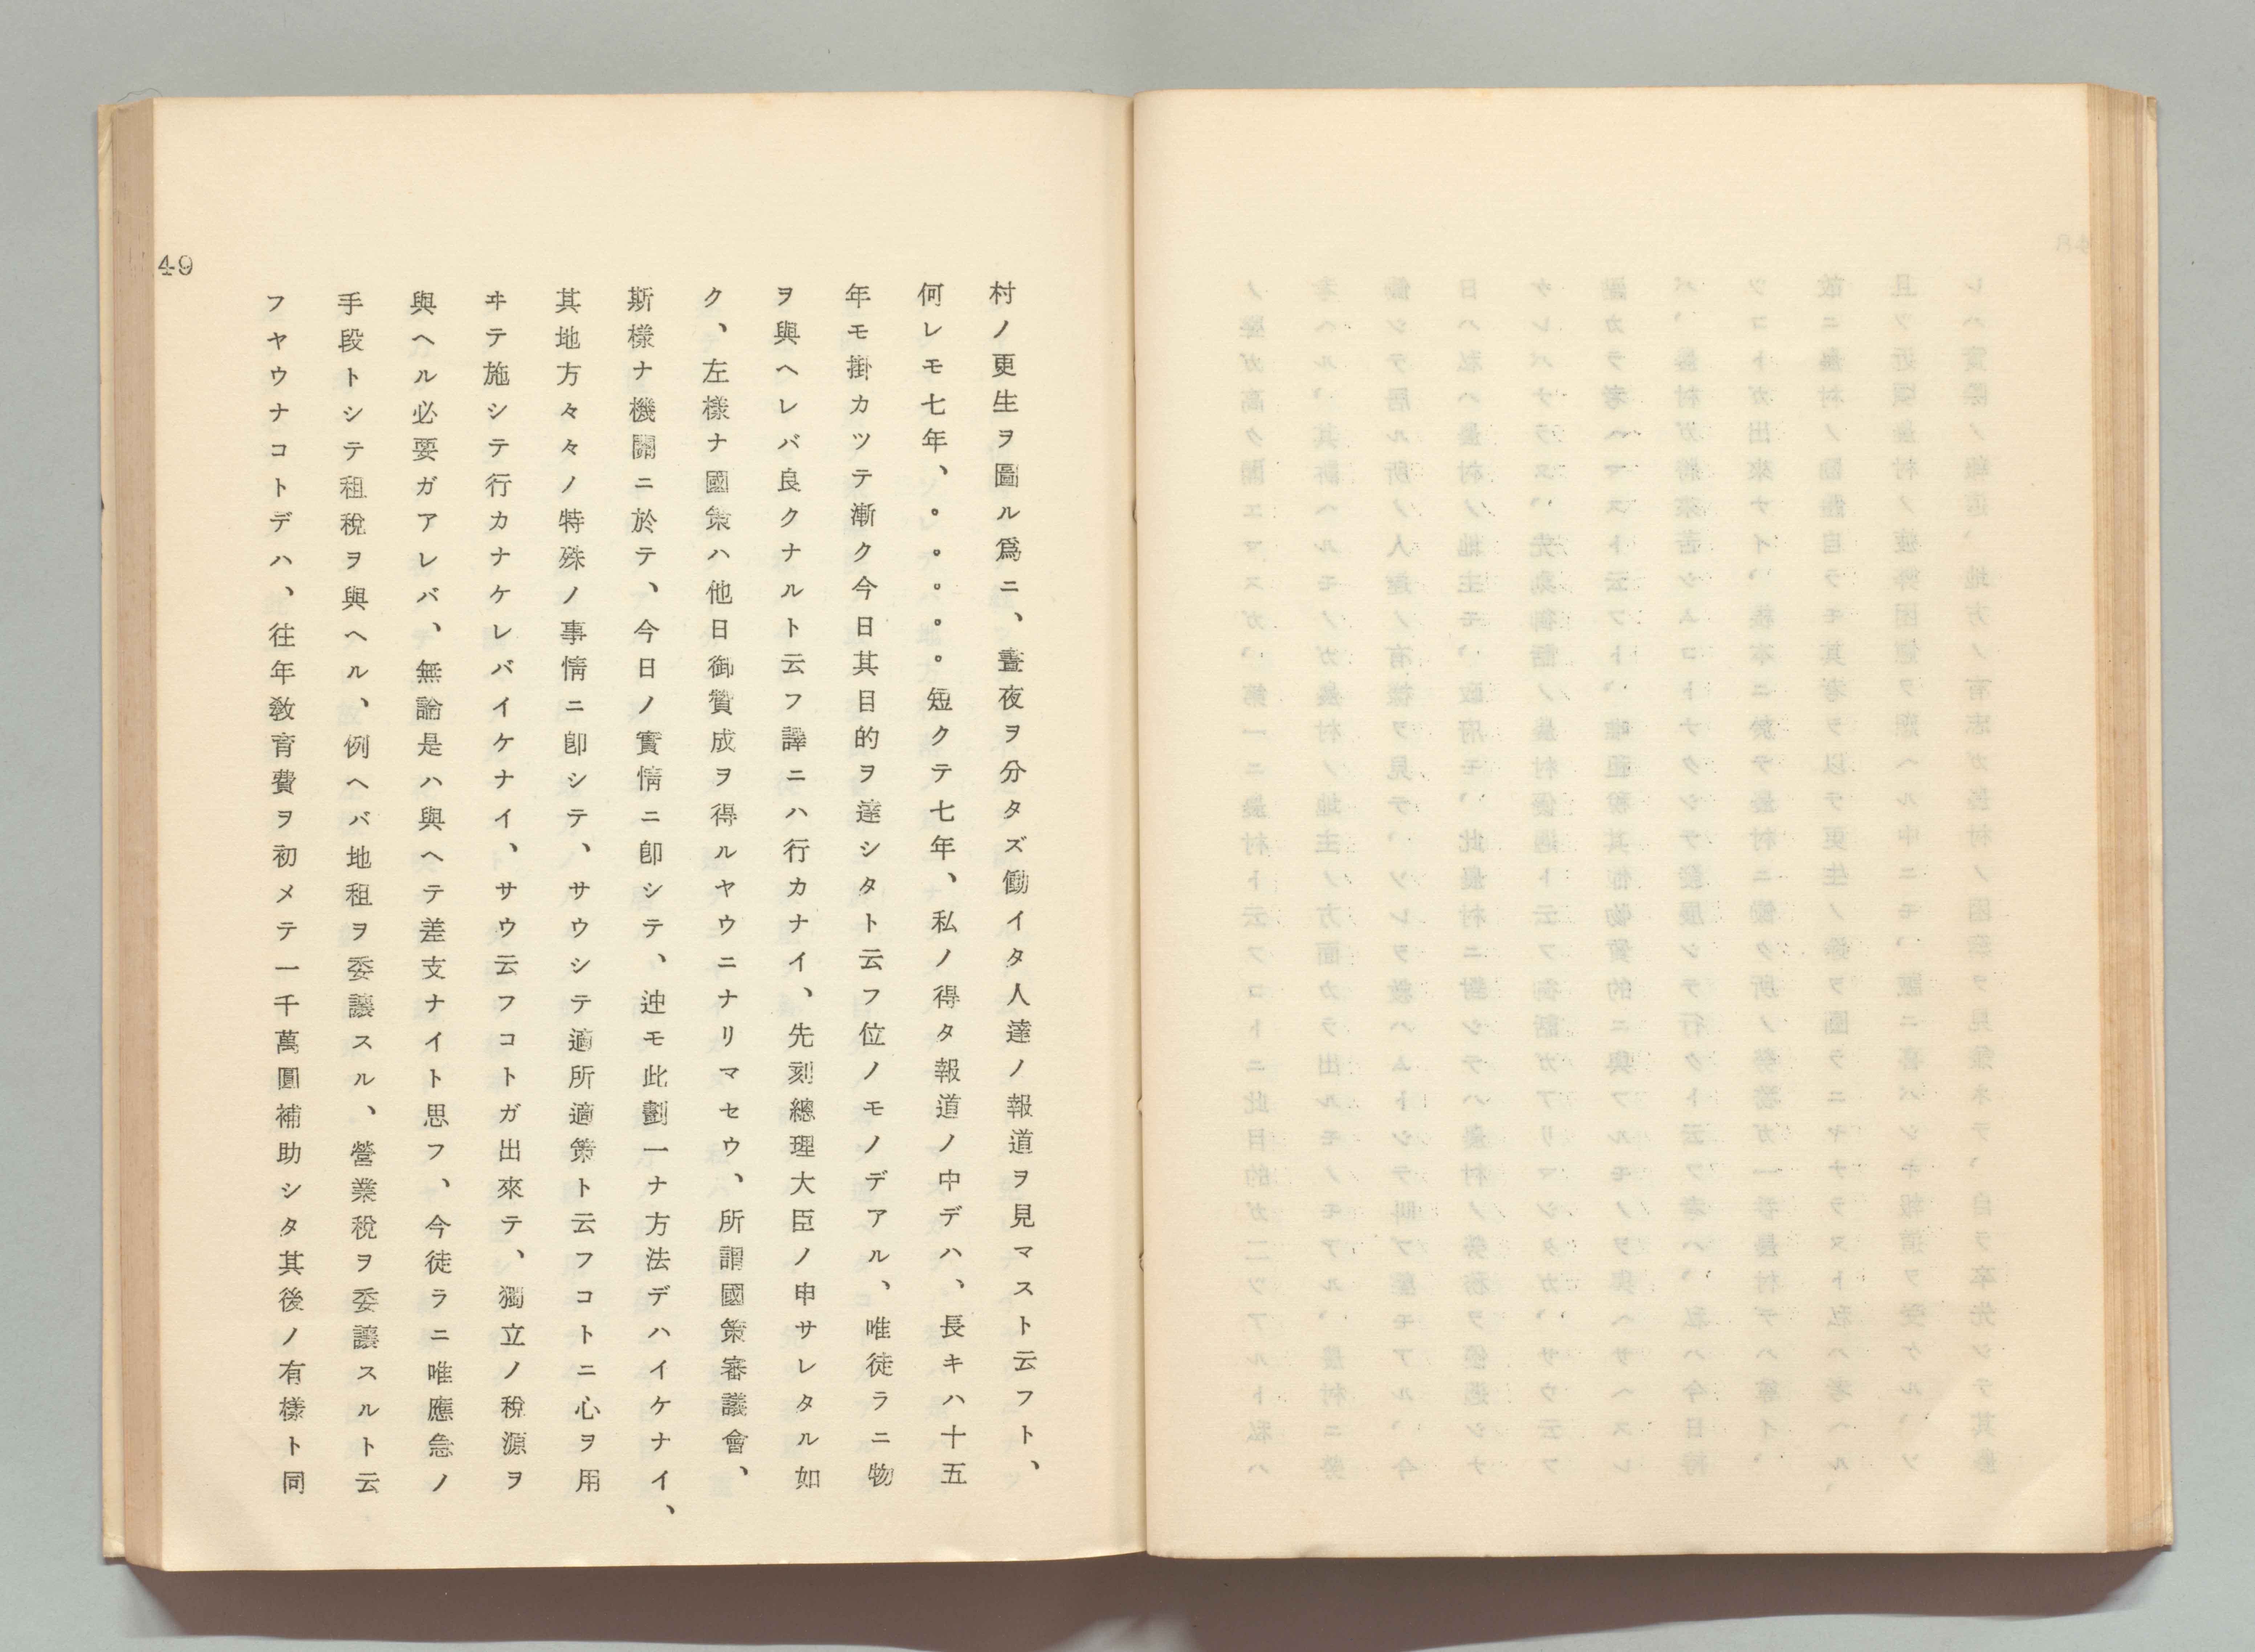 村ノ更生ヲ圖ル爲ニ、晝夜ヲ分タズ働イタ人達ノ報道ヲ見マスト云フト、
何レモ七年、。。。。。短クテ七年、私ノ得タ報道ノ中デハ、長キハ十五
年モ掛カツテ漸ク今日其目的ヲ達シタト云フ位ノモノデアル、唯徒ラニ物
ヲ與ヘレバ良クナルト云フ譯ニハ行カナイ、先刻總理大臣ノ申サレタル如
ク、左樣ナ國策ハ他日御贊成ヲ得ルヤウニナリマセウ、所謂國策審議會、
斯樣ナ機關ニ於テ、今日ノ實情ニ卽シテ、迚モ此劃一ナ方法デハイケナイ、
其地方々々ノ特殊ノ事情ニ卽シテ、サウシテ適所適策ト云フコトニ心ヲ用
ヰテ施シテ行カナケレバイケナイ、サウ云フコトガ出來テ、獨立ノ稅源ヲ
與ヘル必要ガアレバ、無論是ハ與ヘテ差支ナイト思フ、今徒ラニ唯應急ノ
手段トシテ租稅ヲ與ヘル、例ヘバ地租ヲ委讓スル、營業稅ヲ委讓スルト云
フヤウナコトデハ、往年敎育費ヲ初メテ一千萬圓補助シタ其後ノ有樣ト同
49